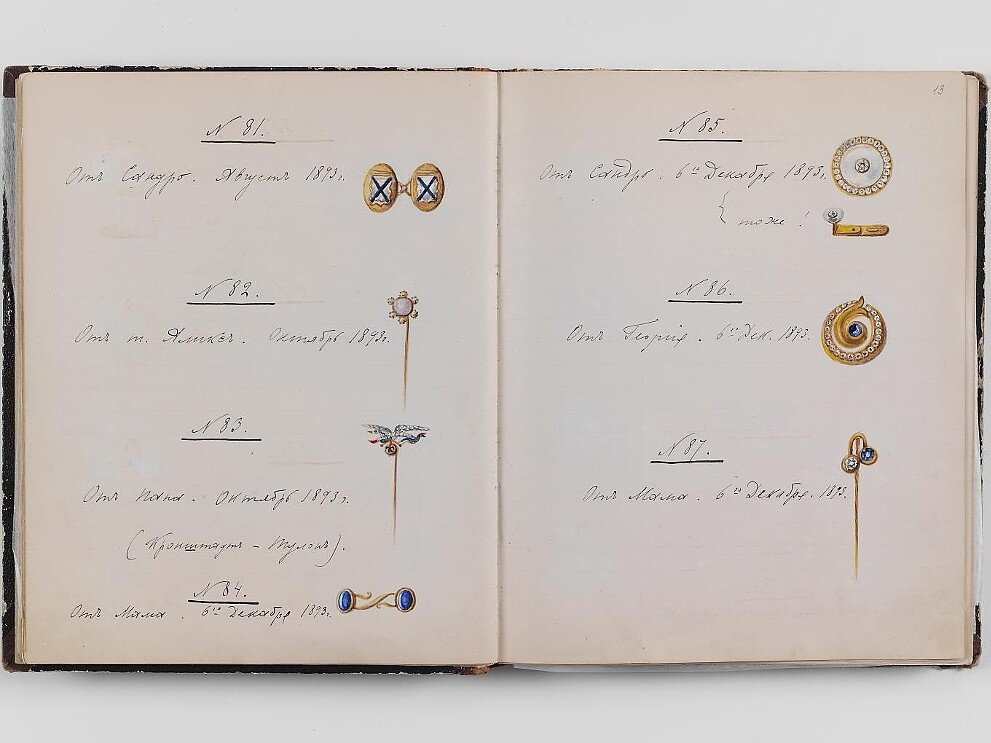 N 81.
Отъ Сандро. Августъ 1893г.
N 82.
Отъ т. Аликсъ. Октябрь 1893г.
N 83.
Отъ Папа. Октябрь 1893г.
(Кронштадтъ – Тулонъ).
N 84.
Отъ Мама. 6го Декабря 1893г.
13
N 85.
Отъ Сандро. 6го Декабря 1893г.
{ тоже!
N 86.
Отъ Георгія. 6го Дек. 1893.
N 87.
Отъ Мама. 6го Декабря. 1893.